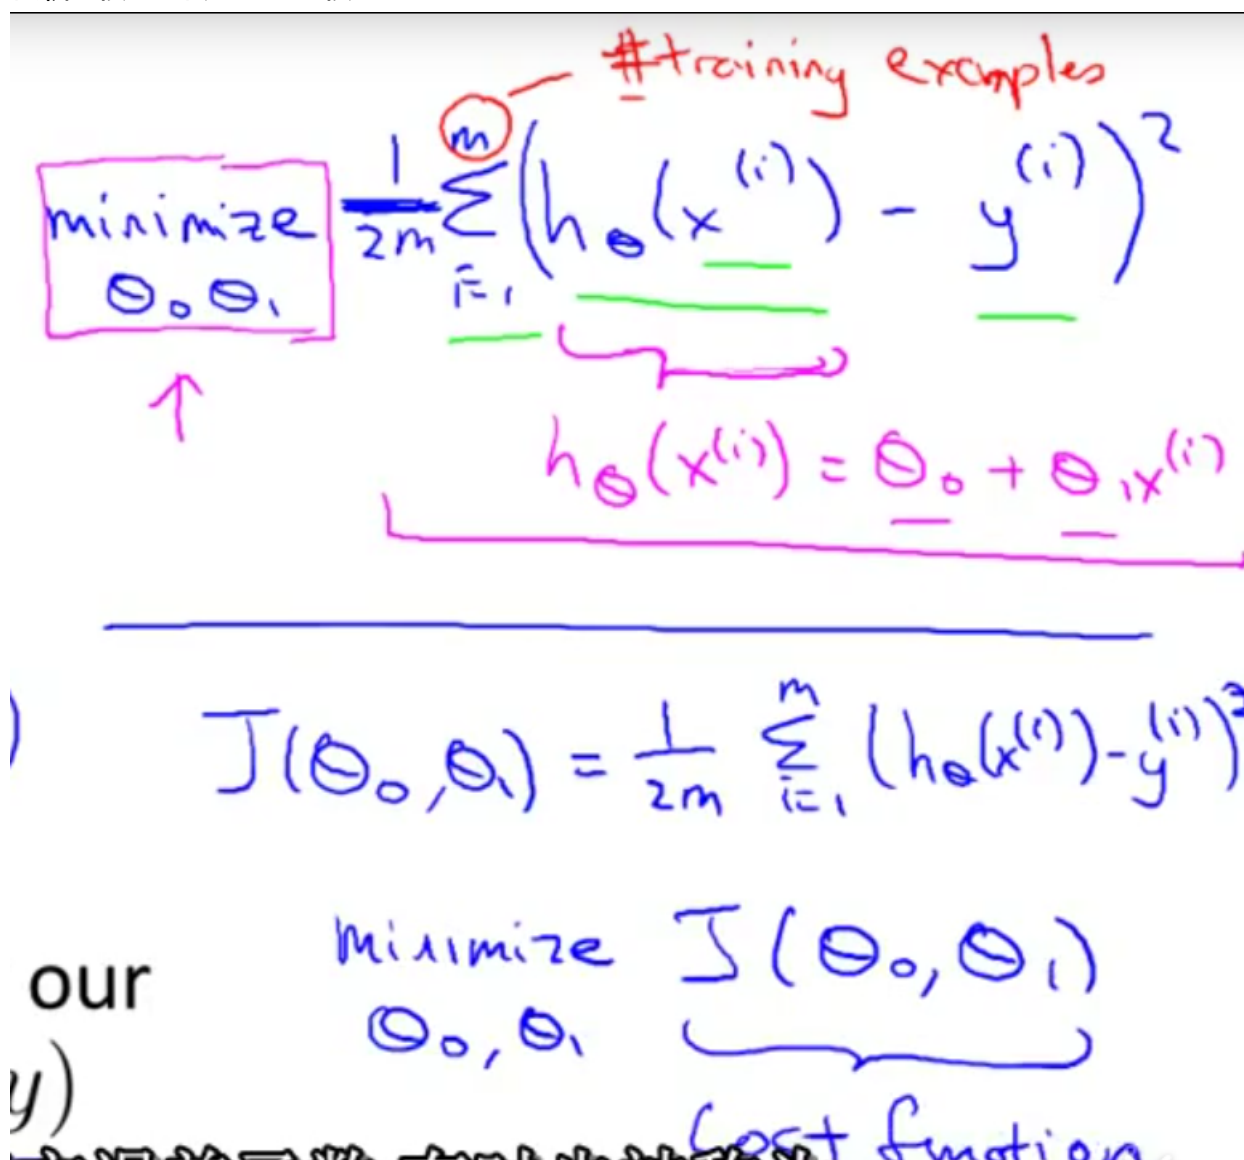 #training examples
minimize θ₀ θ₁ 1/2m Σ_{i=1}^{m} (h_θ(x^{(i)}) - y^{(i)})²
h_θ(x^{(i)}) = θ₀ + θ₁x^{(i)}
J(θ₀,θ₁) = 1/2m Σ_{i=1}^{m} (h_θ(x^{(i)})-y^{(i)})²
our
minimize J(θ₀,θ₁)
θ₀,θ₁
y)
Cost function